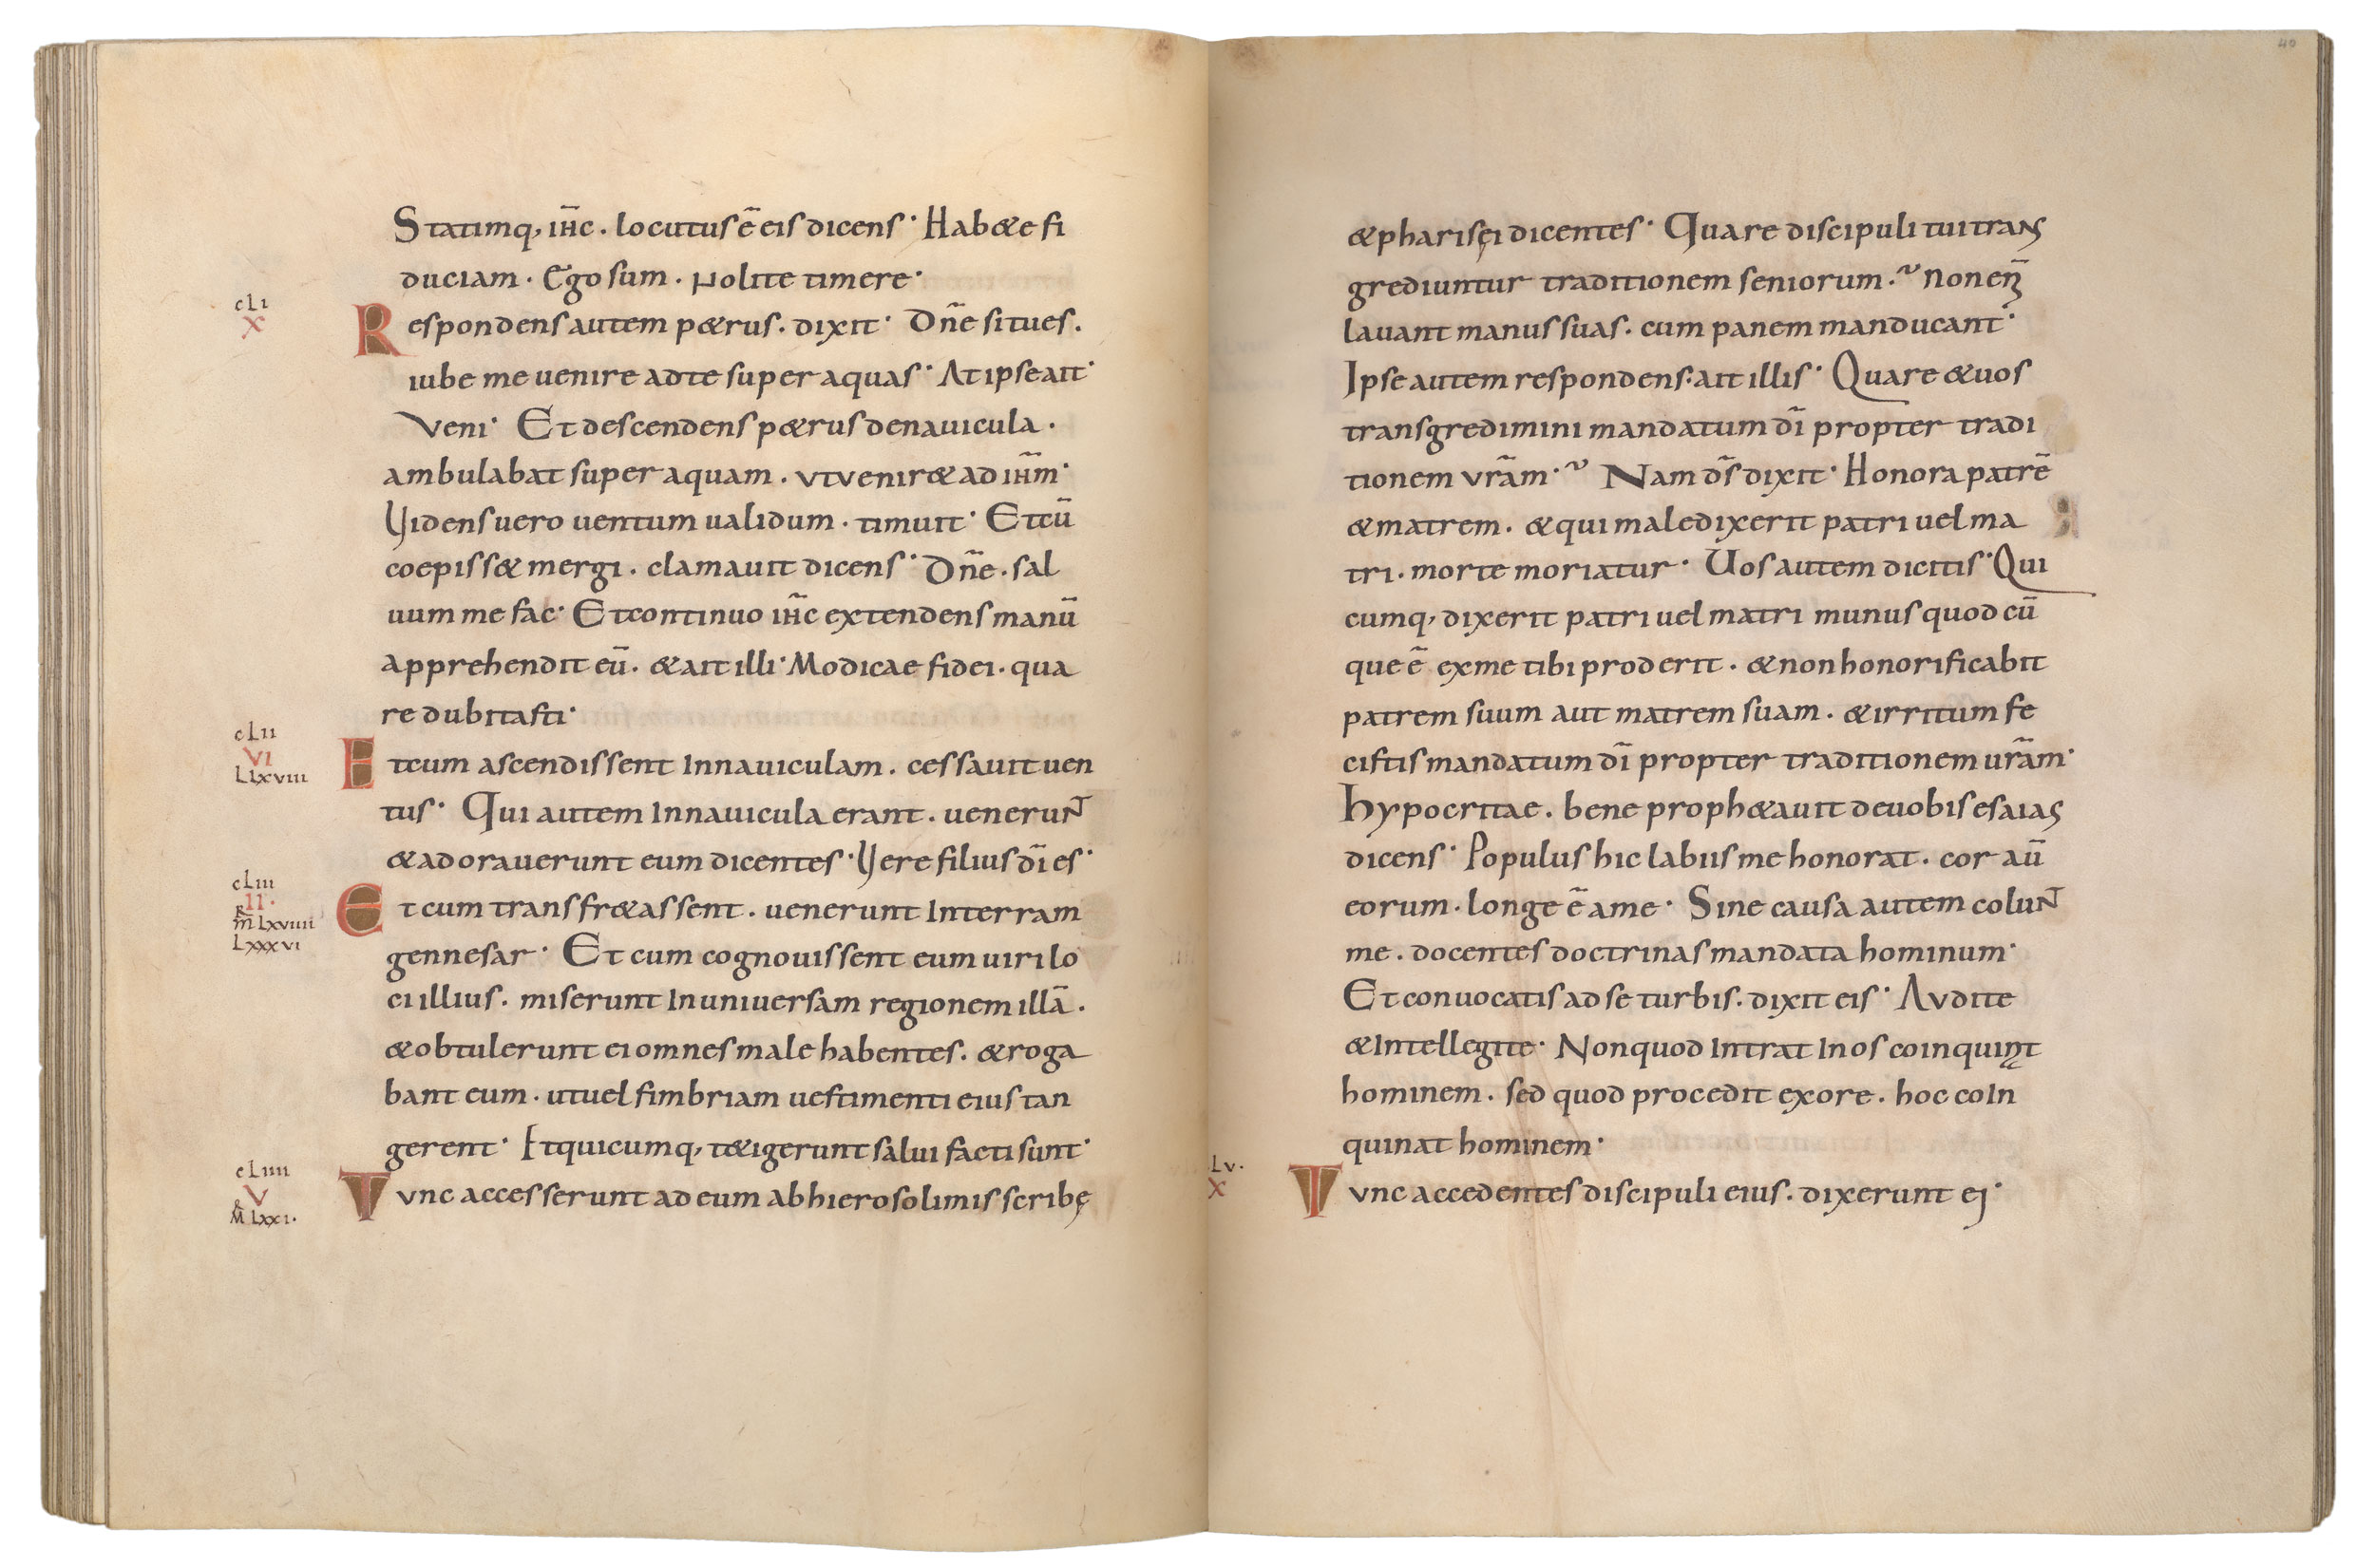 Statimq, ih̄c . locutus ē eis dicens · Hab&e fi
duciam · Ego sum · Nolite timere ·
cLı
X
Respondens autem p&rus . dixit · Dn̄e si tu es .
iube me uenire ad te super aquas · At ipse ait ·
Veni · Et descendens p&rus de nauicula .
ambulabat super aquam . vt venir& ad ih̄m ·
Videns uero uentum ualidum . timuit · Et cū
coepiss& mergi . clamauit dicens · Dn̄e . sal
uum me fac · Et continuo ih̄c extendens manū
apprehendit eū . & ait illi · Modicae fidei . qua
re dubitasti ·
cLıı
VI
LLxvııı
Et cum ascendissent In nauiculam . cessauit uen
tus · Qui autem In nauicula erant . uenerunt
& adorauerunt eum dicentes · Vere filius dī es ·
cLııı
II ·
R
m̄ Lxvıııı
Lxxxvı
Et cum transfr&assent . uenerunt In terram
gennesar · Et cum cognouissent eum uiri lo
ci illius . miserunt In uniuersam regionem illā .
& obtulerunt ei omnes male habentes . & roga
bant eum . ut uel fimbriam uestimenti eius tan
gerent · Et quicumq, t&igerunt salui facti sunt ·
cLıııı
V
R
M Lxxı .
Tvnc accesserunt ad eum ab hierosolimis scribę
40
& pharisęi dicentes · Quare discipuli tui trans
grediuntur traditionem seniorum . Non en̄
lauant manus suas . cum panem manducant ·
Ipse autem respondens . ait illis · Quare & uos
transgredimini mandatum dī propter tradi
tionem vr̄am · Nam ds̄ dixit · Honora patrē
& matrem . & qui maledixerit patri uel ma
tri . morte moriatur · Uos autem dicitis · Qui
cumq, dixerit patri uel matri munus quod cū
que ē ex me tibi proderit . & non honorificabit
patrem suum aut matrem suam . & irritum fe
cistis mandatum dī propter traditionem ur̄am ·
Hypocritae . bene proph&auit de uobis esaias
dicens · Populus hic labiis me honorat . cor aū
eorum . longe ē a me · Sine causa autem colunt
me . docentes doctrinas mandata hominum ·
Et conuocatis ad se turbis . dixit eis · Avdite
& Intellegite · Non quod Int̄rat In os coinquinat
hominem . sed quod procedit ex ore . hoc coIn
quinat hominem ·
Lv .
X
Tvnc accedentes discipuli eius . dixerunt ei ·